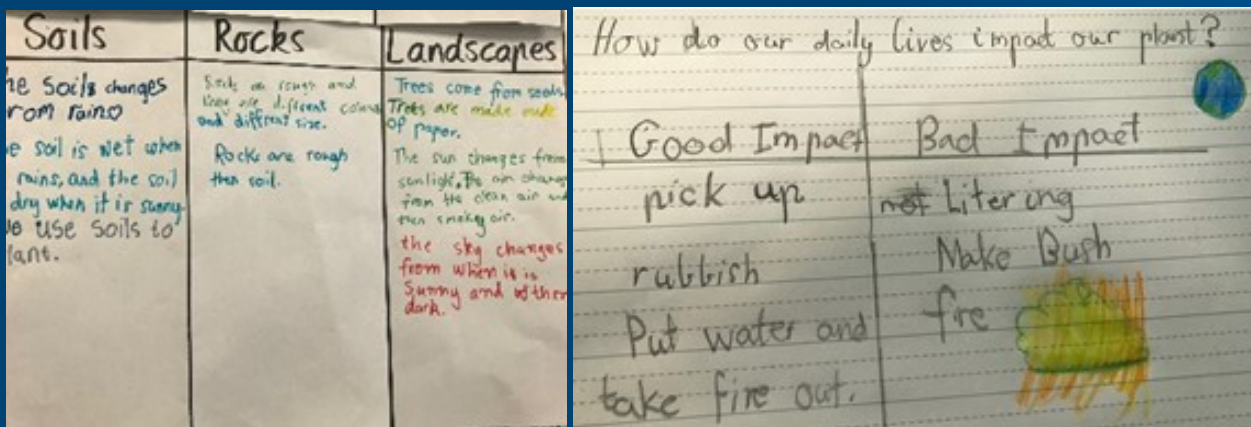 Soils
he soils changes
rom raino
e soil is wet when
rains, and the soil
dry when it is sunny
e use soils to
lant.
Rocks
rough and
are different colours
and different size.
Rocks are rough
then soil.
Landscapes
Trees come from seeds.
Trees are made made
of paper.
The sun changes from
sunlight. The air change
from the clean air and
then smoky air.
the sky changes
from when it is
Sunny and
dark.
How do our daily lives impact our plant?
Good Impact
pick up
rubbish
Put water and
take fire out.
Bad Impact
not Litering
Make Bush
fire